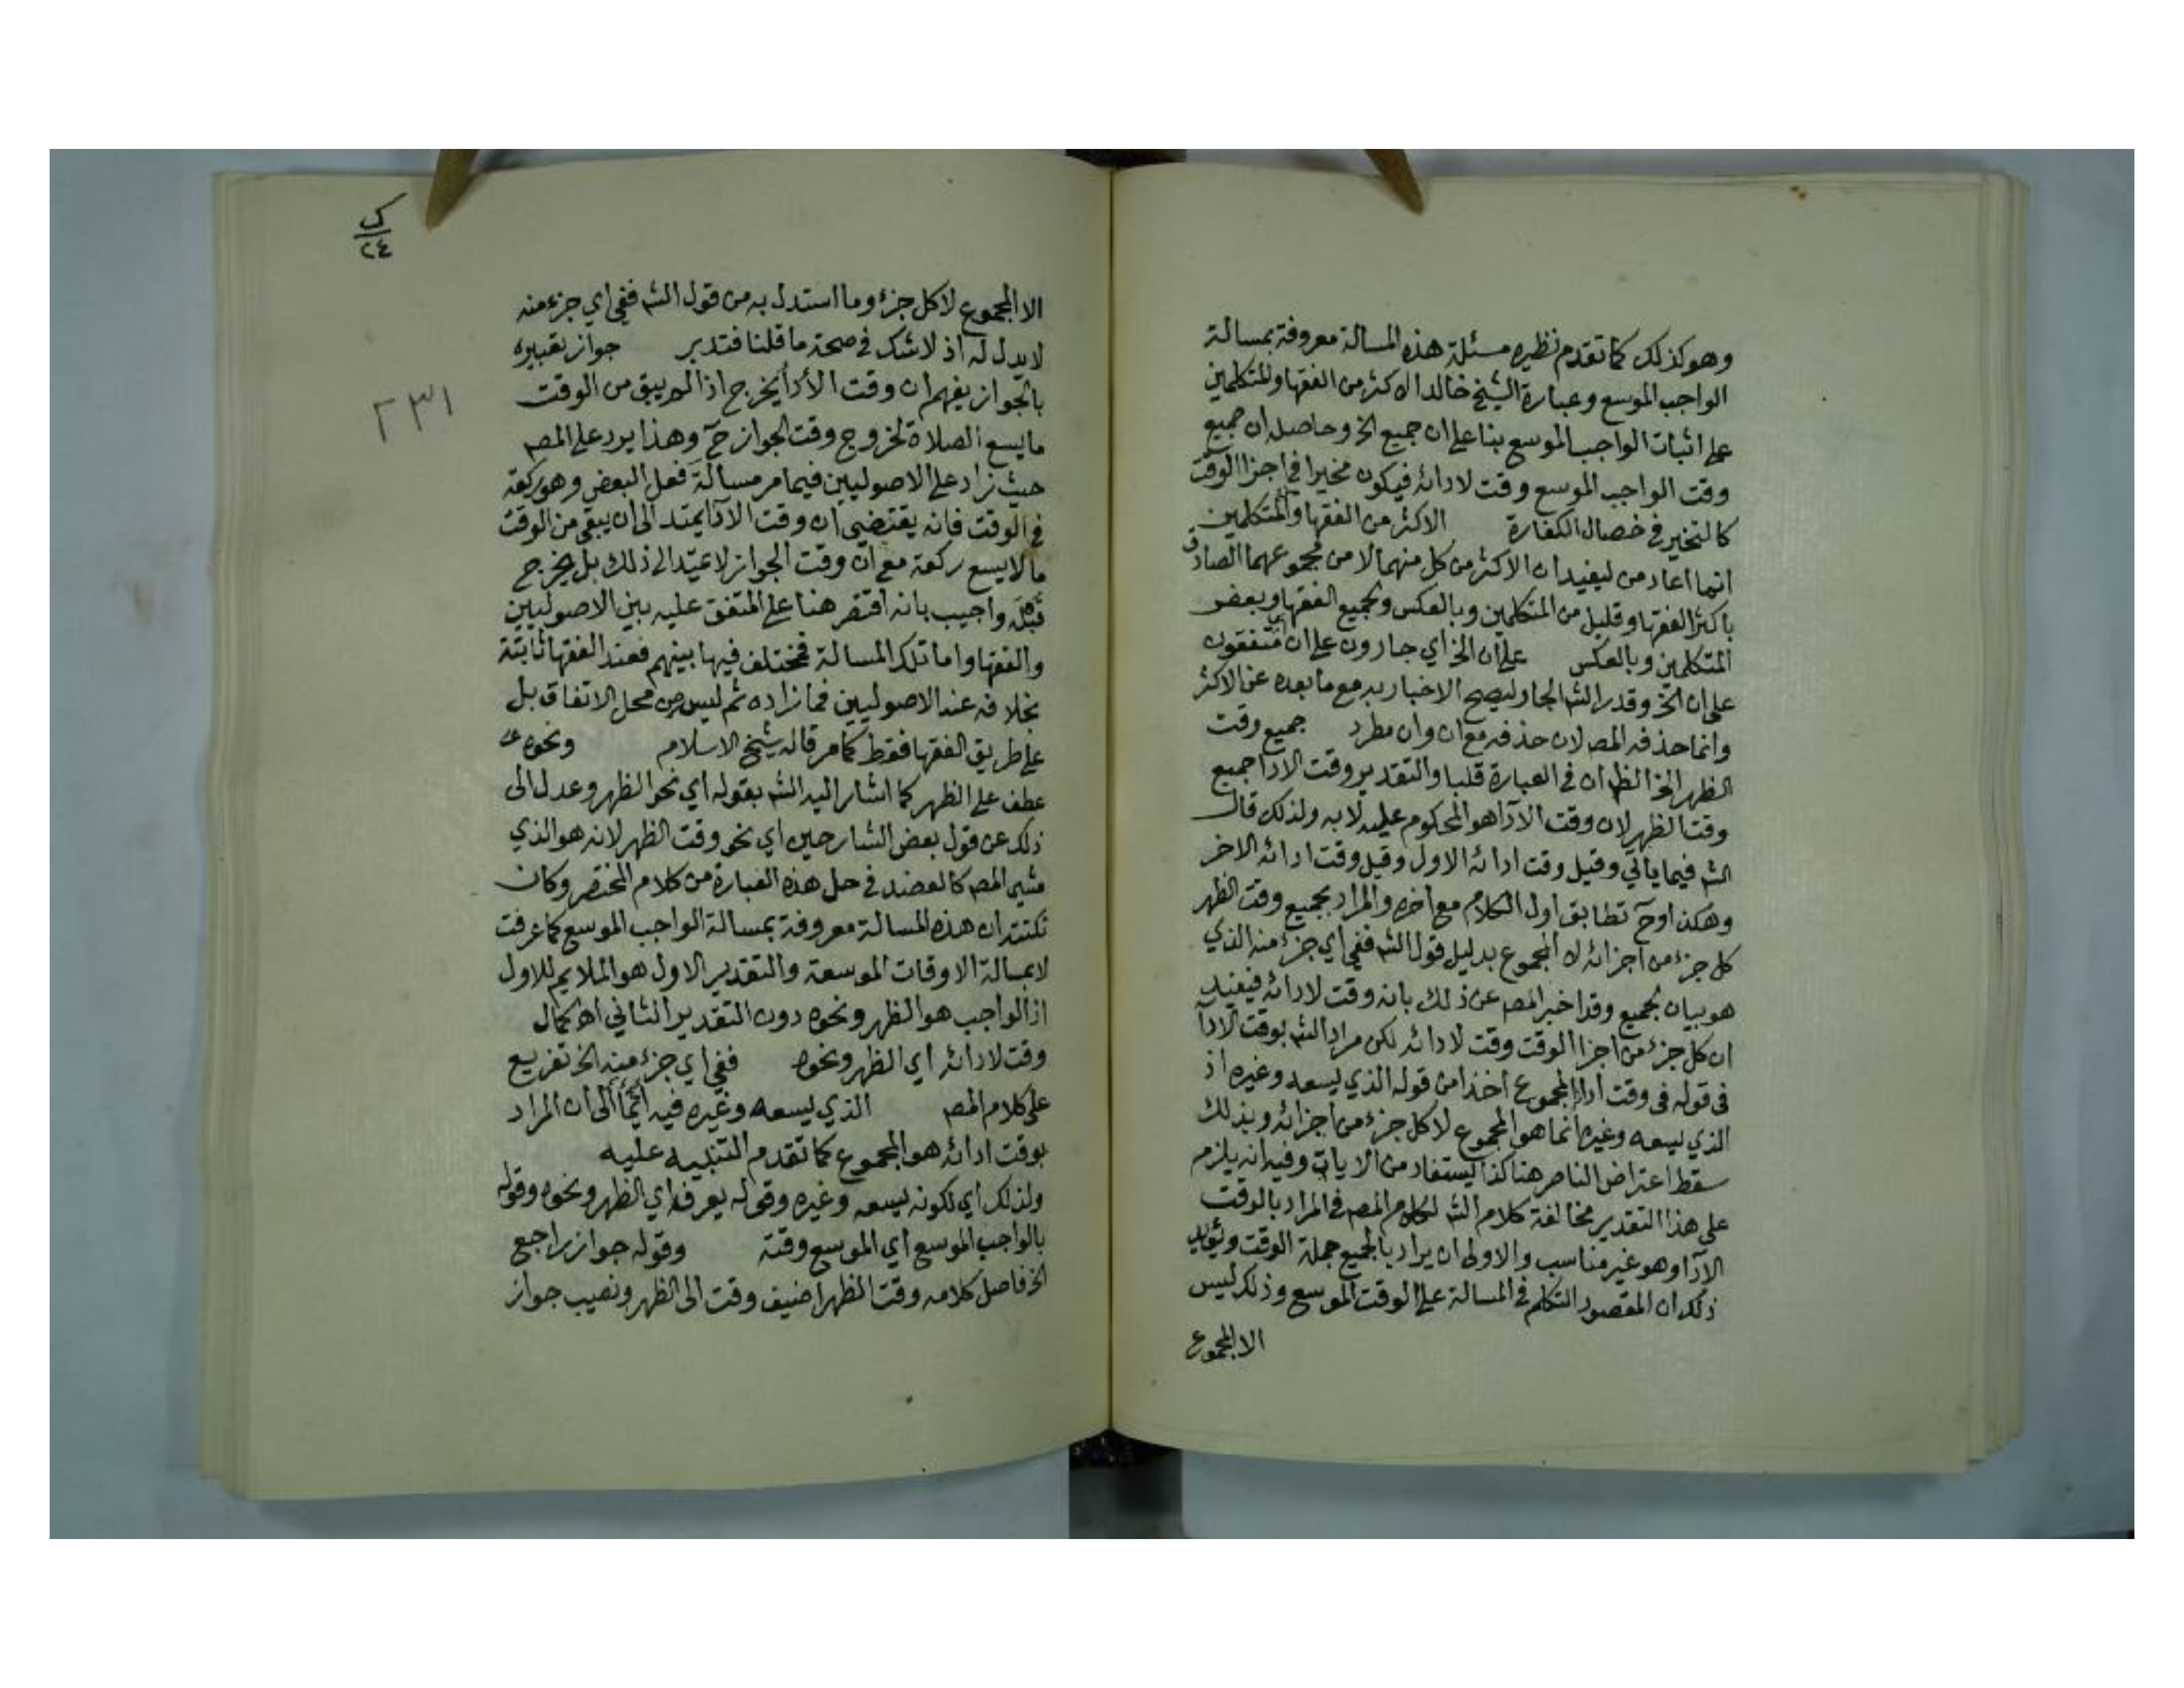 وهو كذلك كما تقدم نظيره مسئلة هذه المسالة معروفة بمسالة
الواجب الموسع وعبارة الشيخ خالد الاكثر من الفقها والمتكلمين
على اثبات الواجب الموسع بنا على ان جميع الخ وحاصله ان جميع
وقت الواجب الموسع وقت لادائه فيكون مخيرا في اجزا الوقت
كالتخيير في خصال الكفارة الاكثر من الفقها والمتكلمين
انما اعاد من ليفيد ان الاكثر من كل منهما لا من مجموعهما الصادق
باكثر الفقها وقليل من المتكلمين وبالعكس وبجميع الفقها وبعض
المتكلمين وبالعكس على ان الخ اي جارون على ان متفقون
على ان الخ وقدر الش الجار ليصح الاخبار به مع ما بعده عن الاكثر
وانما حذفه المص لان حذفه مع ان وان مطرد جميع وقت
الظهر الخ الظ ان في العبارة قلبا والتقدير وقت الادا جميع
وقت الظهر لان وقت الادآ هو المحكوم عليه لا به ولذلك قال
الش فيما ياتي وقيل وقت ادائه الاول وقيل وقت ادائه الاخر
وهكذا وح تطابق اول الكلام مع اخره والمراد بجميع وقت الظهر
كل جزء من اجزائه لا المجموع بدليل قول الش ففي اي جزء منه الذي
هو بيان لجميع وقد اخبر المص عن ذلك بانه وقت لادائه فيفيد
ان كل جزء من اجزا الوقت وقت لادائه لكن مراد الش بوقت الادآ
في قوله في وقت ادا المجموع اخذا من قوله الذي يسعه وغيره اذ
الذي يسعه وغيره انما هو المجموع لا كل جزء من اجزائه وبذلك
سقط اعتراض الناصر هنا كذا يستفاد من الايات وفيه انه يلزم
على هذا التقدير مخالفة كلام الش لكلام المص في المراد بالوقت
الادآ وهو غير مناسب والاولى ان يراد بالجميع جملة الوقت ويؤيد
ذلك ان المقصود التكلم في المسالة على الوقت الموسع وذلك ليس
الا المجموع
ك
٢٤
٢٣١
الا المجموع لا كل جزء وما استدل به من قول الش ففي اي جزء منه
لا يدل له اذ لا شك في صحة ما قلنا فتدبر جواز تعبيره
بالجواز يفهم ان وقت الأدأ يخرج اذا لم يبق من الوقت
ما يسع الصلاة لخروج وقت الجواز ح وهذا يرد على المص
حيث زاد على الاصوليين فيما مر مسالة فعل البعض وهو ركعة
في الوقت فانه يقتضي ان وقت الادآ يمتد الى ان يبقى من الوقت
ما لا يسع ركعة مع ان وقت الجواز لا يمتد الى ذلك بل يخرج
قبله واجيب بانه اقتصر هنا على المتفق عليه بين الاصوليين
والفقها واما تلك المسالة فمختلف فيها بينهم فعند الفقها ثابتة
بخلافه عند الاصوليين فما زاده ثم ليس من محل الاتفاق بل
على طريق الفقها فقط كما مر قاله شيخ الاسلام ونحوه
عطف على الظهر كما اشار اليه الش بقوله اي نحو الظهر وعدل الى
ذلك عن قول بعض الشارحين اي نحو وقت الظهر لانه هو الذي
مشى المص كالعضد في حل هذه العبارة من كلام المختصر وكان
نكتته ان هذه المسالة معروفة بمسالة الواجب الموسع كما عرفت
لا بمسالة الاوقات الموسعة والتقدير الاول هو الملايم للاول
اذ الواجب هو الظهر ونحوه دون التقدير الثاني اه كمال
وقت لادائه اي الظهر ونحوه ففي اي جزء منه الخ تفريع
على كلام المص الذي يسعه وغيره فيه ايمأ الى ان المراد
بوقت ادائه هو المجموع كما تقدم التنبيه عليه
ولذلك اي لكونه يسعه وغيره وقوله يعرف اي الظهر ونحوه وقوله
بالواجب الموسع اي الموسع وقته وقوله جواز راجع
الخ فاصل كلامه وقت الظهر اضيف وقت الى الظهر ونصب جواز